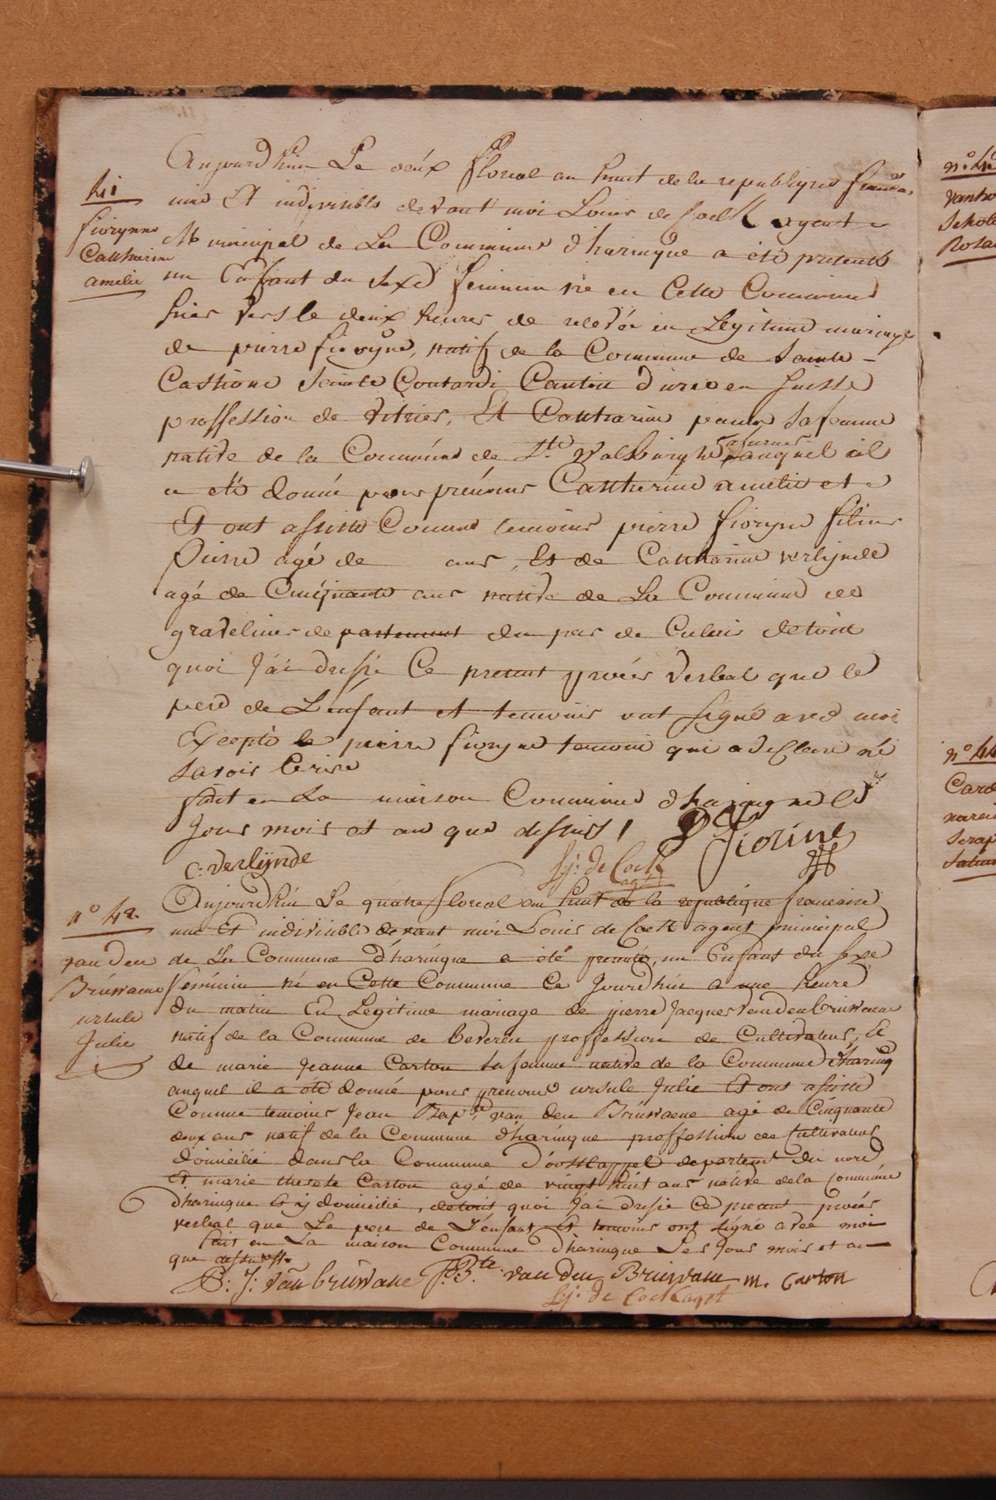 Aujourdhui Le deux floreal an huit de la republique francais
une Et indivisible devant moi Louis de Cock agent
41
fiorynne
Catharine
amelie
Municipal de La Commune d'haringue a été presenté
un Enfant du sexe feminin né en Cette Commune
hier vers le deux heures de relevée en Legitime mariage
de pierre fioryne, natif de la Commune de Sainte
Cassione Canton d'urie en suisse
proffession de vitrier, Et Catharine sa femme
native de la Commune de Ste Walburghe auquel il
a eté donné pour prénoms Catharine amelie et
Et ont assisté Comme temoins pierre fioryne filius
Pierre agé de ans, Et de Catharine verlynde
agé de Cinquante ans native de La Commune de
gravelines departement du pas de Calais de tout
quoi J'ai dressé Ce present procés verbal que le
pere de L'enfant et temoins ont signé avec moi
Excepté le pierre fioryne temoin qui a declaré né
savoir Ecrire
fait en La maison Commune d'haringue les
Jour mois et an que dessus
P Fiorine
C: verlynde
Lj: de Cock
agt
n° 42.
van den
Bruwaene
ursule
Julie
Aujourdhui Le quatre floreal an huit de la republique francaise
une Et indivisible devant moi Louis de Cock agent municipal
de La Commune D'haringue a été presenté, un Enfant du sexe
féminin né en Cette Commune Ce Jourdhui a une heure
du matin En Legitime mariage de pierre Jacques vanden bruwaene
natif de la Commune de beveren proffession de Cultivateur, Et
de marie Jeanne Carton sa femme native de la Commune d'haring
auquel il a eté donné pour prenoms ursule Julie Et ont assisté
Comme temoins Jean Bapte van den Bruwaene agé de Cinquante
deux ans natif de la Commune d'haringue proffession de Cultivateur
domicilié dans la Commune d'oostcappel departemt du nord
Et marie therese Carton agé de vingt huit ans native de la Commune
dharingue Et y domiciliée, de tout quoi J'ai dressé ce present procés
verbal que Le pere de L'enfant Et temoins ont signé avec moi
fait en La maison Commune d'haringue Les Jour mois et an
que dessus
P: J: van bruwane J: Bte: van den Bruwane m. Carton
Lj: de Cock agt